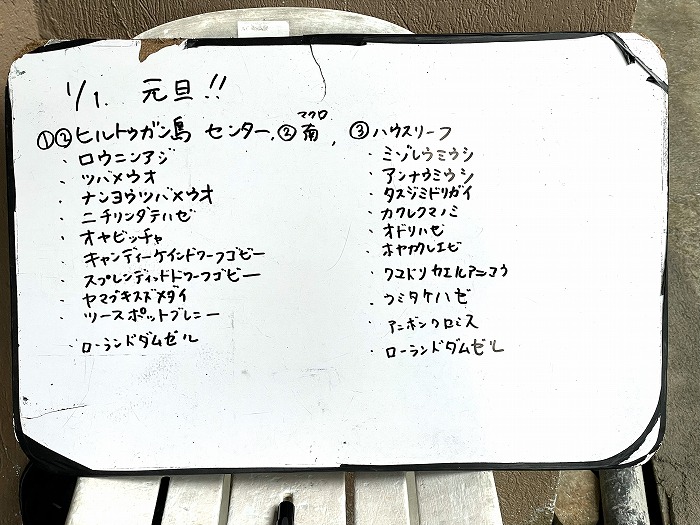 1/1. 元旦!!
①②ヒルトゥガン島 センター.②マクロ南,
・ロウニンアジ
・ツバメウオ
・ナンヨウツバメウオ
・ニチリンダテハゼ
・オヤビッチャ
・キャンディーケインドワーフゴビー
・スプレンディッドドワーフゴビー
・ヤマブキスズメダイ
・ツースポットブレニー
・ローランドダムゼル
③ハウスリーフ
・ミゾレウミウシ
・アンナウミウシ
・タスジミドリガイ
・カクレクマノミ
・オドリハゼ
・ホヤカクレエビ
・クマドリカエルアンコウ
・ウミタケハゼ
・アンボンクロミス
・ローランドダムゼル